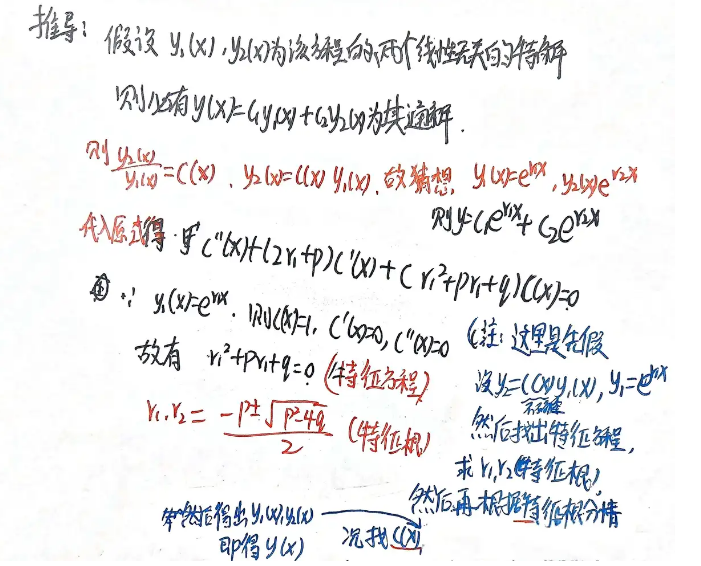 推导：假设 y₁(x), y₂(x)为该方程的两个线性无关的特解
则必有y(x)=C₁y₁(x)+C₂y₂(x)为其通解.
则 y₂(x)/y₁(x)=C(x). y₂(x)=C(x) y₁(x). 故猜想, y₁(x)=e^{r₁x}, y₂(x)e^{r₂x}
则y=C₁e^{r₁x}+C₂e^{r₂x}
代入原式得 C''(x)+(2r₁+p)C'(x)+(r₁²+pr₁+q)C(x)=0.
① ∵ y₁(x)=e^{r₁x}. 则C(x)=1, C'(x)=0, C''(x)=0
故有 r₁²+pr₁+q=0. (特征方程)
r₁.r₂ = (-p±√(p²-4q))/2 (特征根)
(注: 这里是先假
设y₂=C(x)y₁(x), y₁=e^{r₁x}
然后找出特征方程,
求r₁,r₂(特征根)
然后再根据特征根分情
况找C(x),
然后得出y₁(x),y₂(x)
即得y(x)